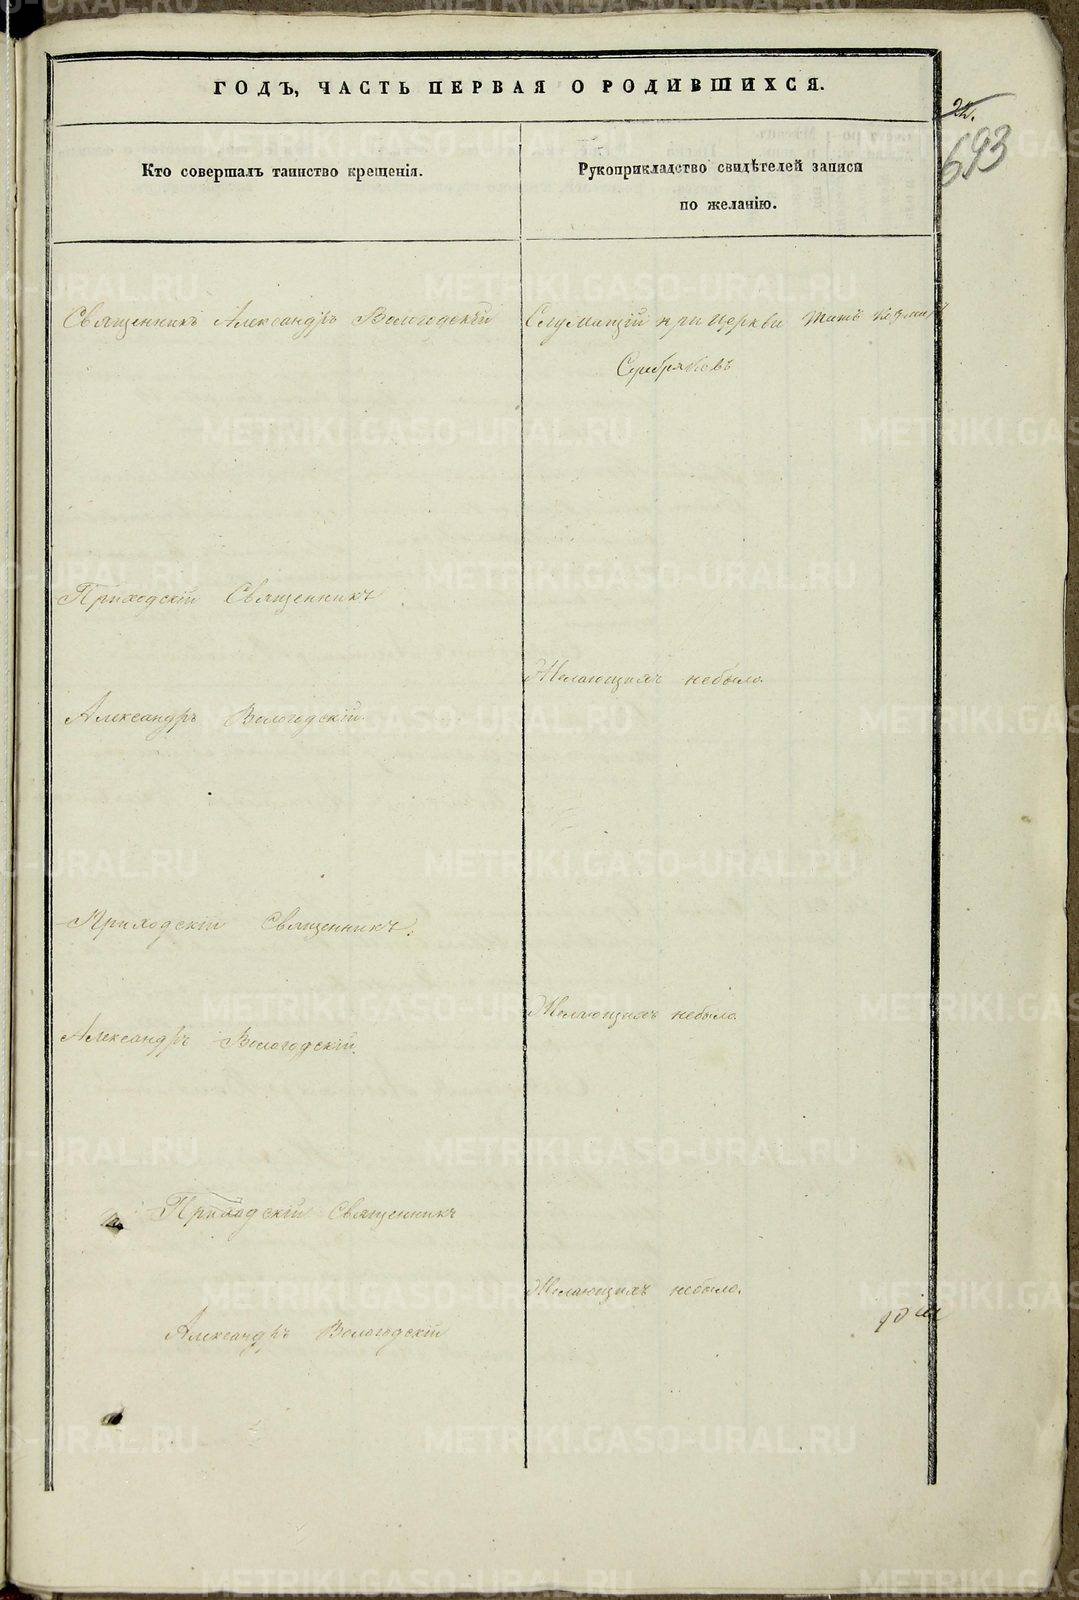 ГОДЪ, ЧАСТЬ ПЕРВАЯ О РОДИВШИХСЯ.
22.
693
Кто совершалъ таинство крещенія.
Рукоприкладство свидѣтелей записи
по желанію.
Священникъ Александръ Вологодскій
Служащій при церкви
Серебряковъ
Приходскій Священникъ
Желающихъ небыло.
Александръ Вологодскій.
Приходскій Священникъ.
Желающихъ небыло.
Александръ Вологодскій.
Приходскій Священникъ
Желающихъ небыло.
Александръ Вологодскій
METRIKI.GASO-URAL.RU